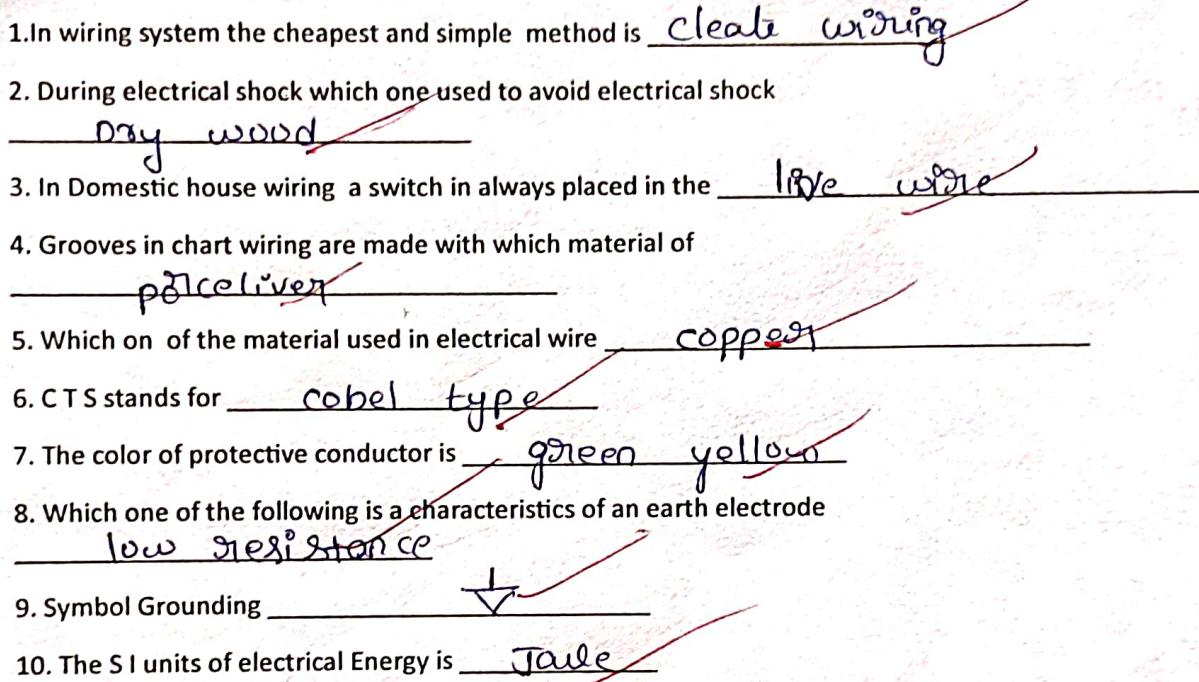 1.In wiring system the cheapest and simple method is cleate wiring
2. During electrical shock which one used to avoid electrical shock
Dry wood
3. In Domestic house wiring a switch in always placed in the live wire
4. Grooves in chart wiring are made with which material of
porceliver
5. Which on of the material used in electrical wire copper
6. C T S stands for cobel type
7. The color of protective conductor is green yellow
8. Which one of the following is a characteristics of an earth electrode
low resistance
9. Symbol Grounding
10. The S I units of electrical Energy is Joule